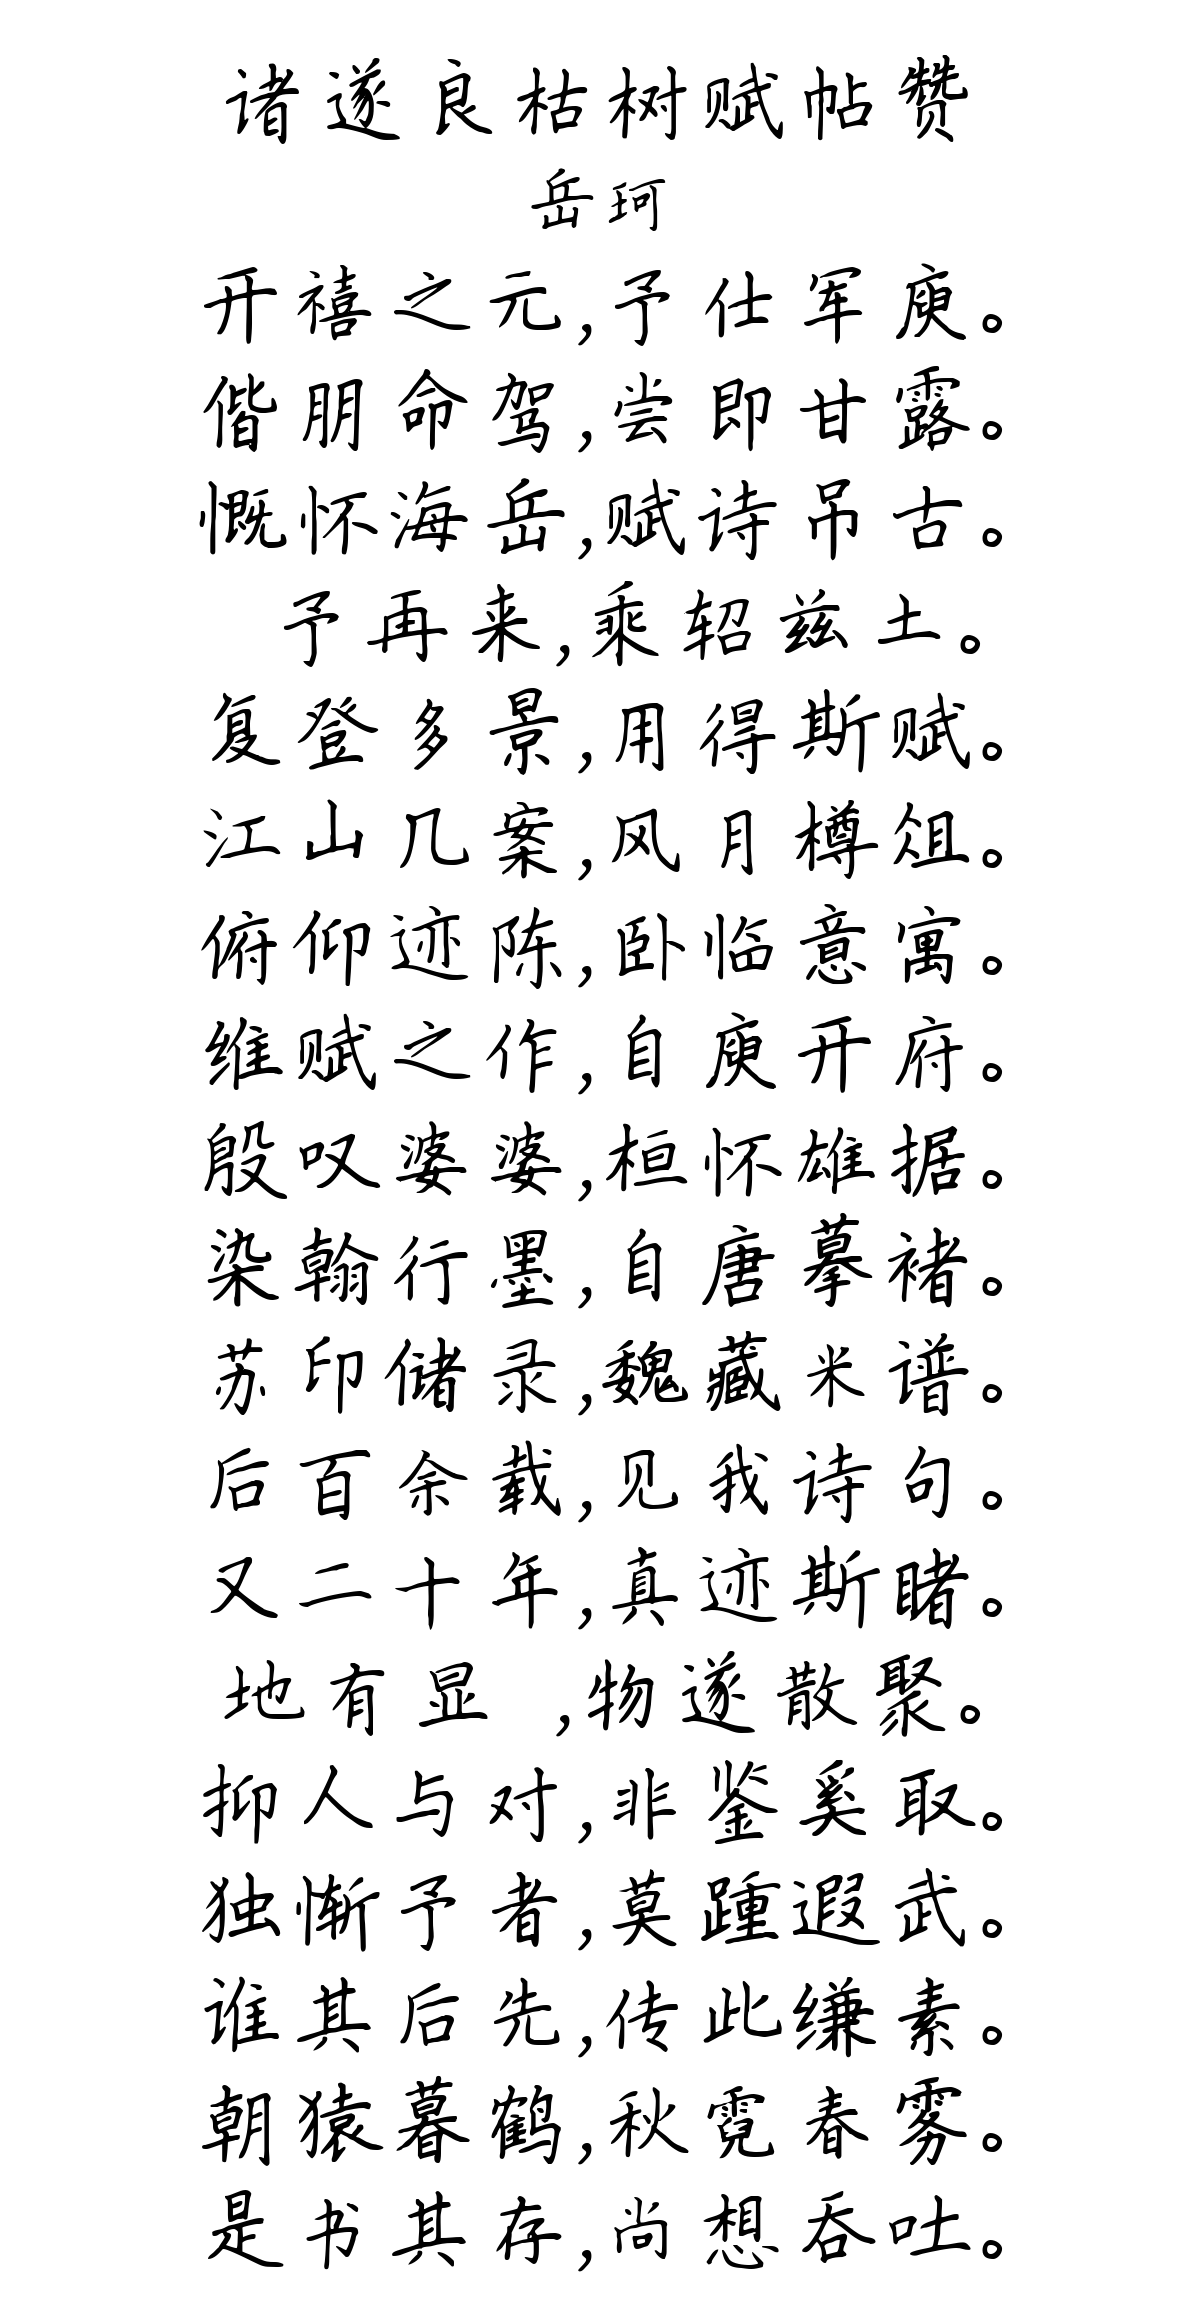 诸遂良枯树赋帖赞
岳珂
开禧之元,予仕军庾。
偕朋命驾,尝即甘露。
慨怀海岳,赋诗吊古。
予再来,乘轺兹土。
复登多景,用得斯赋。
江山几案,风月樽俎。
俯仰迹陈,卧临意寓。
维赋之作,自庾开府。
殷叹婆婆,桓怀雄据。
染翰行墨,自唐摹褚。
苏印储录,魏藏米谱。
后百余载,见我诗句。
又二十年,真迹斯睹。
地有显 ,物遂散聚。
抑人与对,非鉴奚取。
独惭予者,莫踵遐武。
谁其后先,传此缣素。
朝猿暮鹤,秋霓春雾。
是书其存,尚想吞吐。